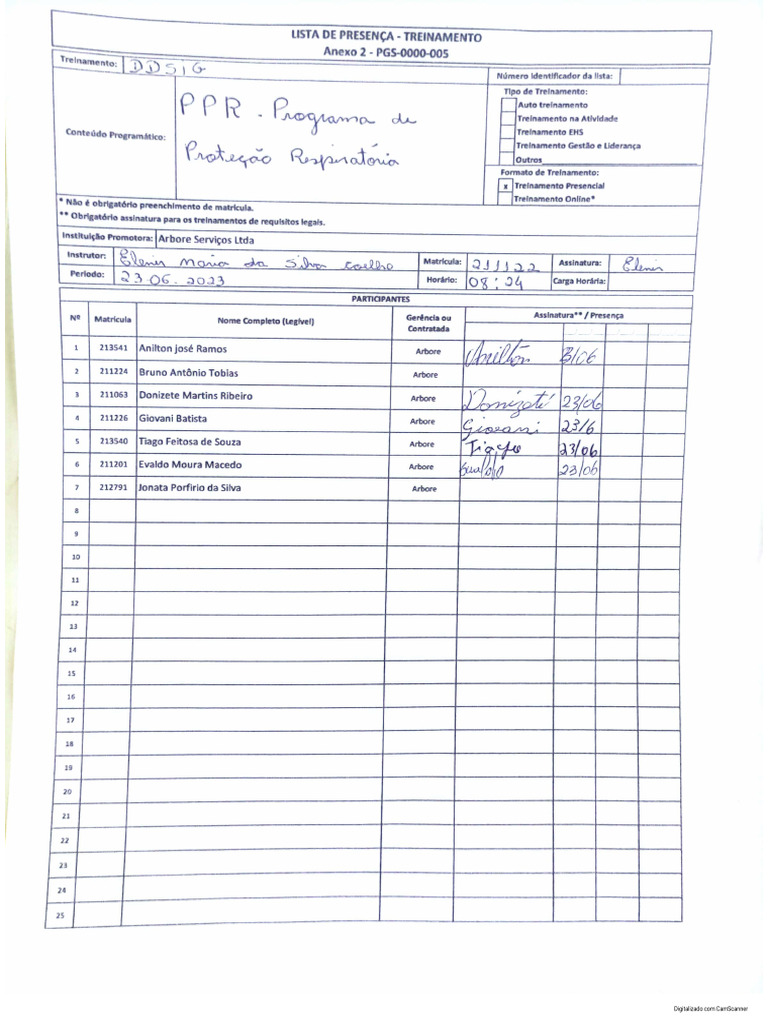 LISTA DE PRESENÇA - TREINAMENTO
Anexo 2 - PGS-0000-005
Treinamento: DDSIG
Número identificador da lista:
Conteúdo Programático:
PPR - Programa de
Proteção Respiratória
Tipo de Treinamento:
Auto treinamento
Treinamento na Atividade
Treinamento EHS
Treinamento Gestão e Liderança
Outros
Formato de Treinamento:
x Treinamento Presencial
Treinamento Online*
* Não é obrigatório preenchimento de matrícula.
** Obrigatório assinatura para os treinamentos de requisitos legais.
Instituição Promotora: Arbore Serviços Ltda
Instrutor: Elenir Maria da Silva Coelho Matrícula: 211122 Assinatura: Elenir
Período: 23.06.2023 Horário: 08:24 Carga Horária:
PARTICIPANTES
Nº Matrícula Nome Completo (Legível) Gerência ou Contratada Assinatura** / Presença
1 213541 Anilton josé Ramos Arbore Anilton 3/06
2 211224 Bruno Antônio Tobias Arbore
3 211063 Donizete Martins Ribeiro Arbore Donizeti 23/06
4 211226 Giovani Batista Arbore Giovani 23/6
5 213540 Tiago Feitosa de Souza Arbore 23/06
6 211201 Evaldo Moura Macedo Arbore 23/06
7 212791 Jonata Porfirio da Silva Arbore
8
9
10
11
12
13
14
15
16
17
18
19
20
21
22
23
24
25
Digitalizado com CamScanner